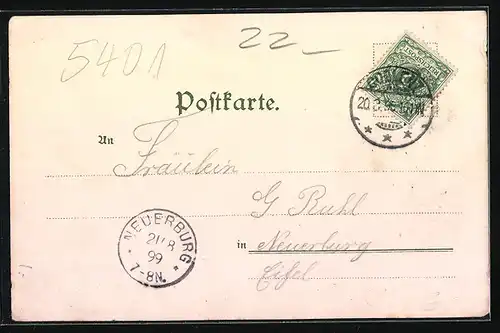 5401
22_
Postkarte.
An
Fräulein
G Ruhl
in Neuerburg
Eifel
NEUERBURG
21/8
99
7-8N.
20.